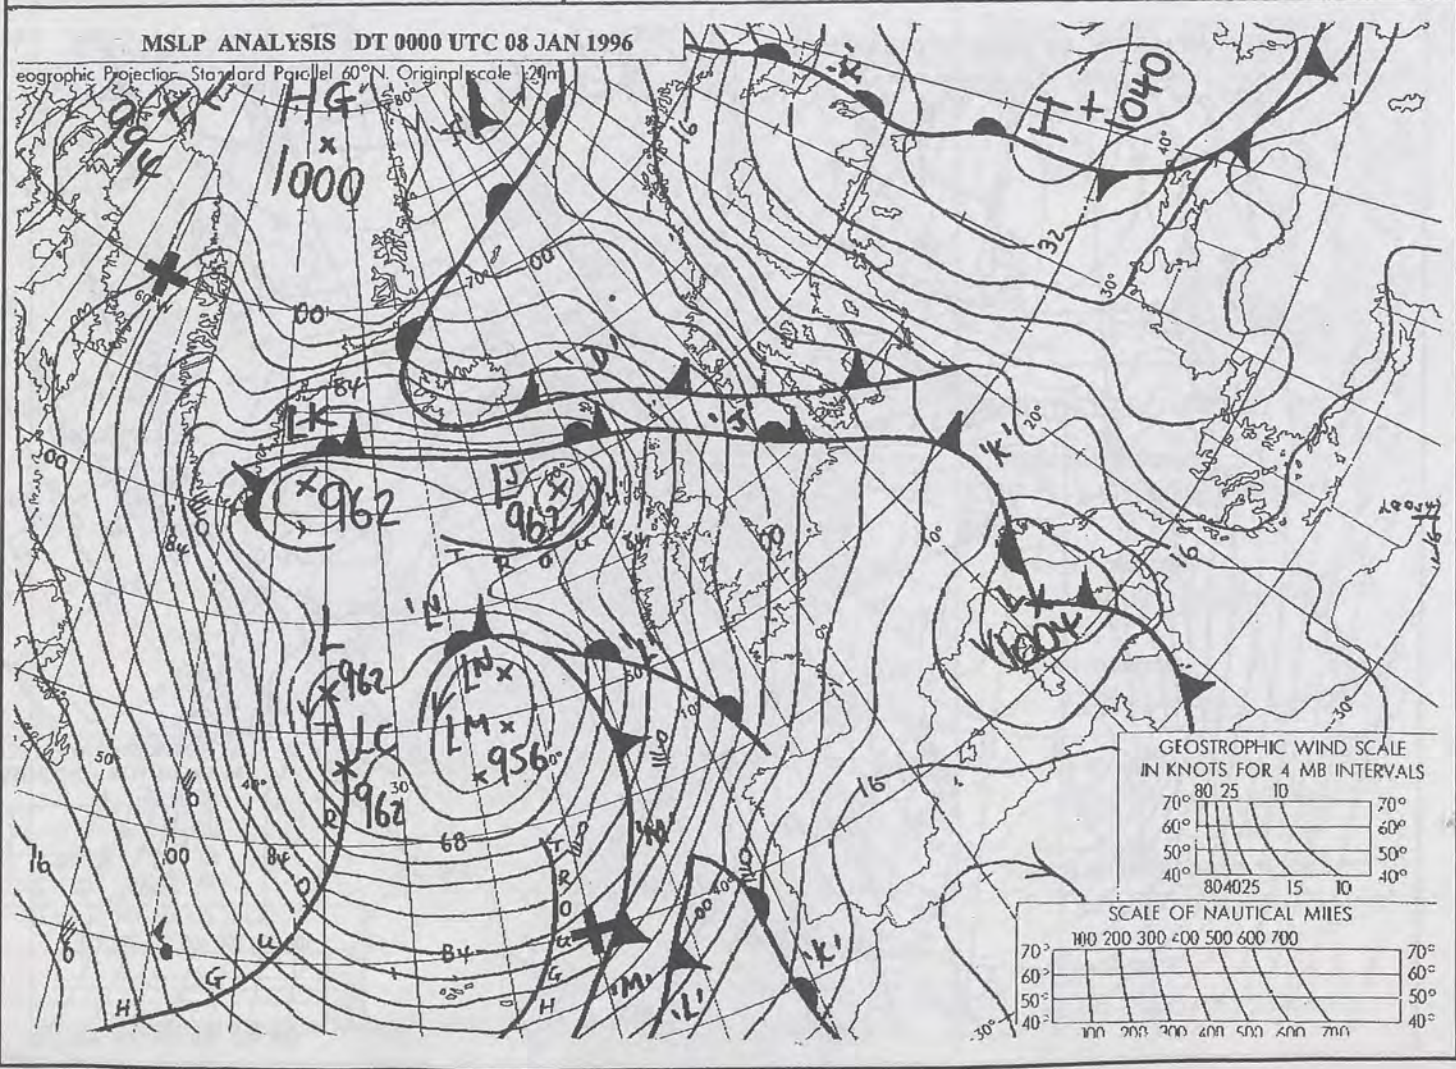 MSLP ANALYSIS DT 0000 UTC 08 JAN 1996
eographic Projection Standard Parallel 60°N. Original scale 1:20m
994
HG
1000
80°
L
'X'
H
1040
16
40°
60°
70°
00
32
30°
00
'D'
84
LK
'J'
20°
'K'
00
962
LJ
967
60°
T R O U G H
84
00
10°
16
84
0°
1004
L
'N'
962
LN
LM
956
50°
10°
50°
40°
T R O U G H
LC
962
30
68
'M'
16
00
84
T R O U G H
84
40°
00
'M'
'L'
'K'
16
30°
30°
GEOSTROPHIC WIND SCALE
IN KNOTS FOR 4 MB INTERVALS
80 25 10
70° 70°
60° 60°
50° 50°
40° 40°
80 40 25 15 10
SCALE OF NAUTICAL MILES
100 200 300 400 500 600 700
70° 70°
60° 60°
50° 50°
40° 40°
100 200 300 400 500 600 700